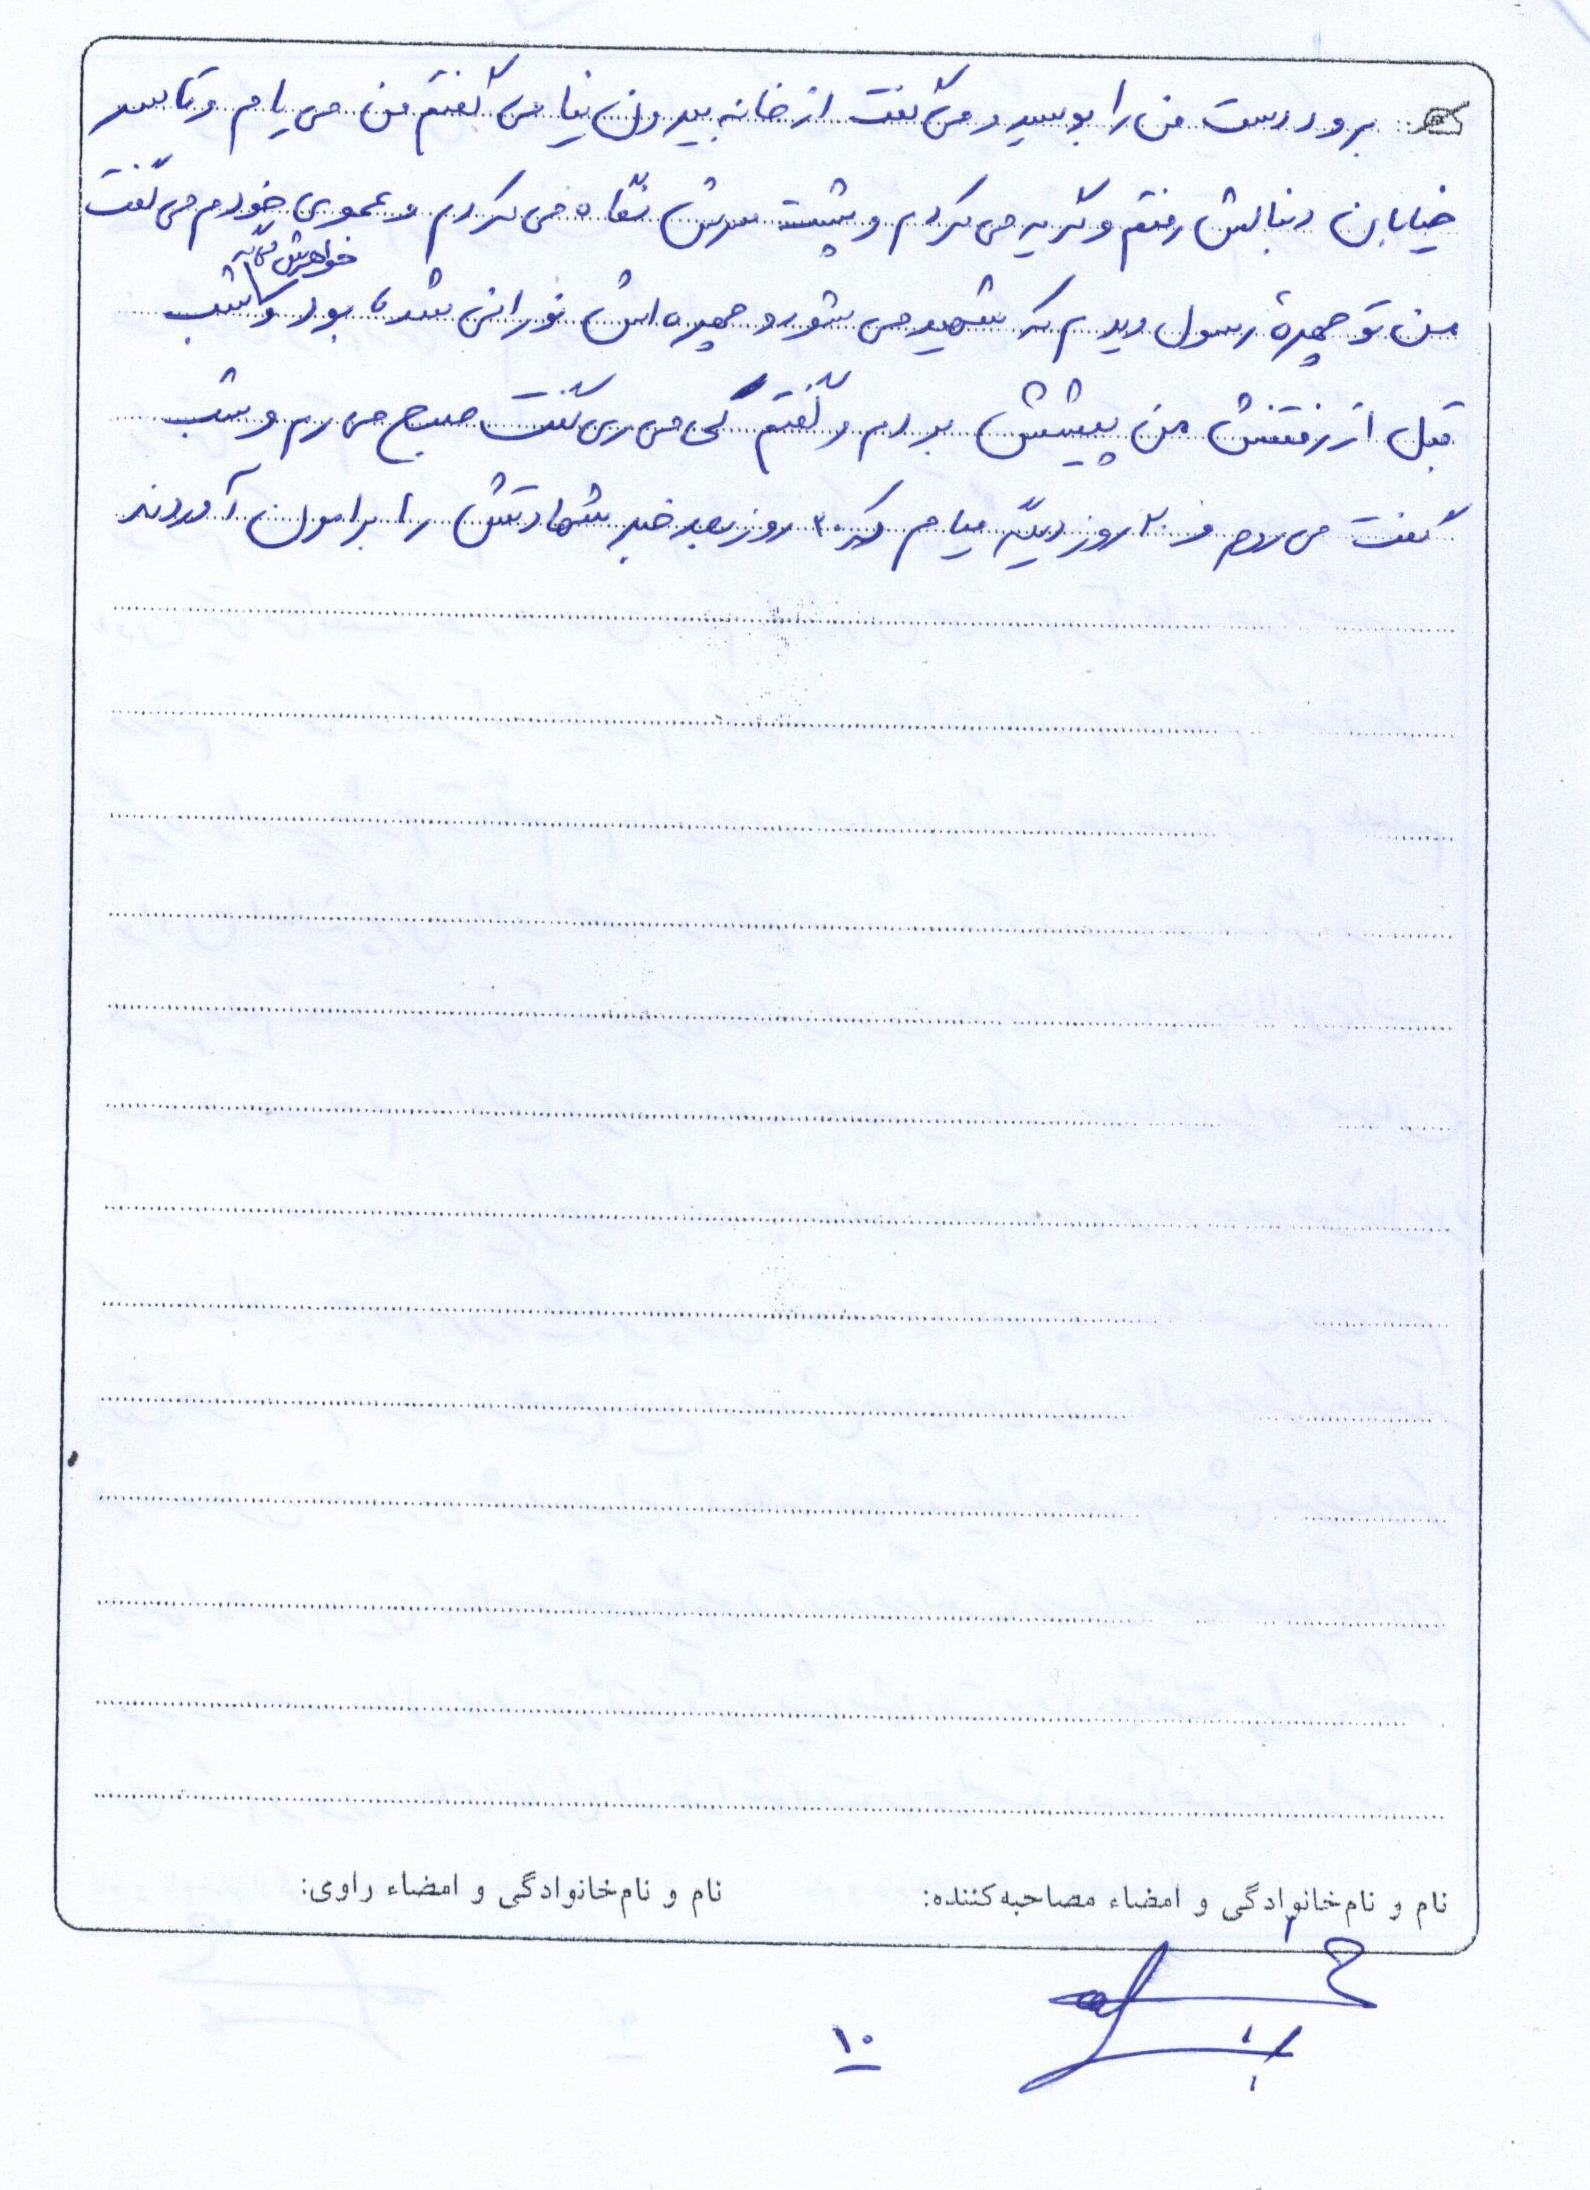 برود دست من را بوسید و می گفت از خانه بیرون نیا می گفتم من می یام و تا سر
خیابان دنبالش رفتم و گریه می کردم و پشت سرش نگاه می کردم و عموی خودم می گفت
من تو چهره رسول دیدم که شهید می شود و چهره اش نورانی شده بود و خواهرش میگه شب
قبل از رفتنش من پیشش بودم و گفتم کی می ری گفت صبح می رم و شب
گفت می روم و ۲۰ روز دیگه میام که ۲۰ روز بعد خبر شهادتش را برامون آوردند
نام و نام‌خانوادگی و امضاء مصاحبه‌کننده:
نام و نام‌خانوادگی و امضاء راوی:
۱۰